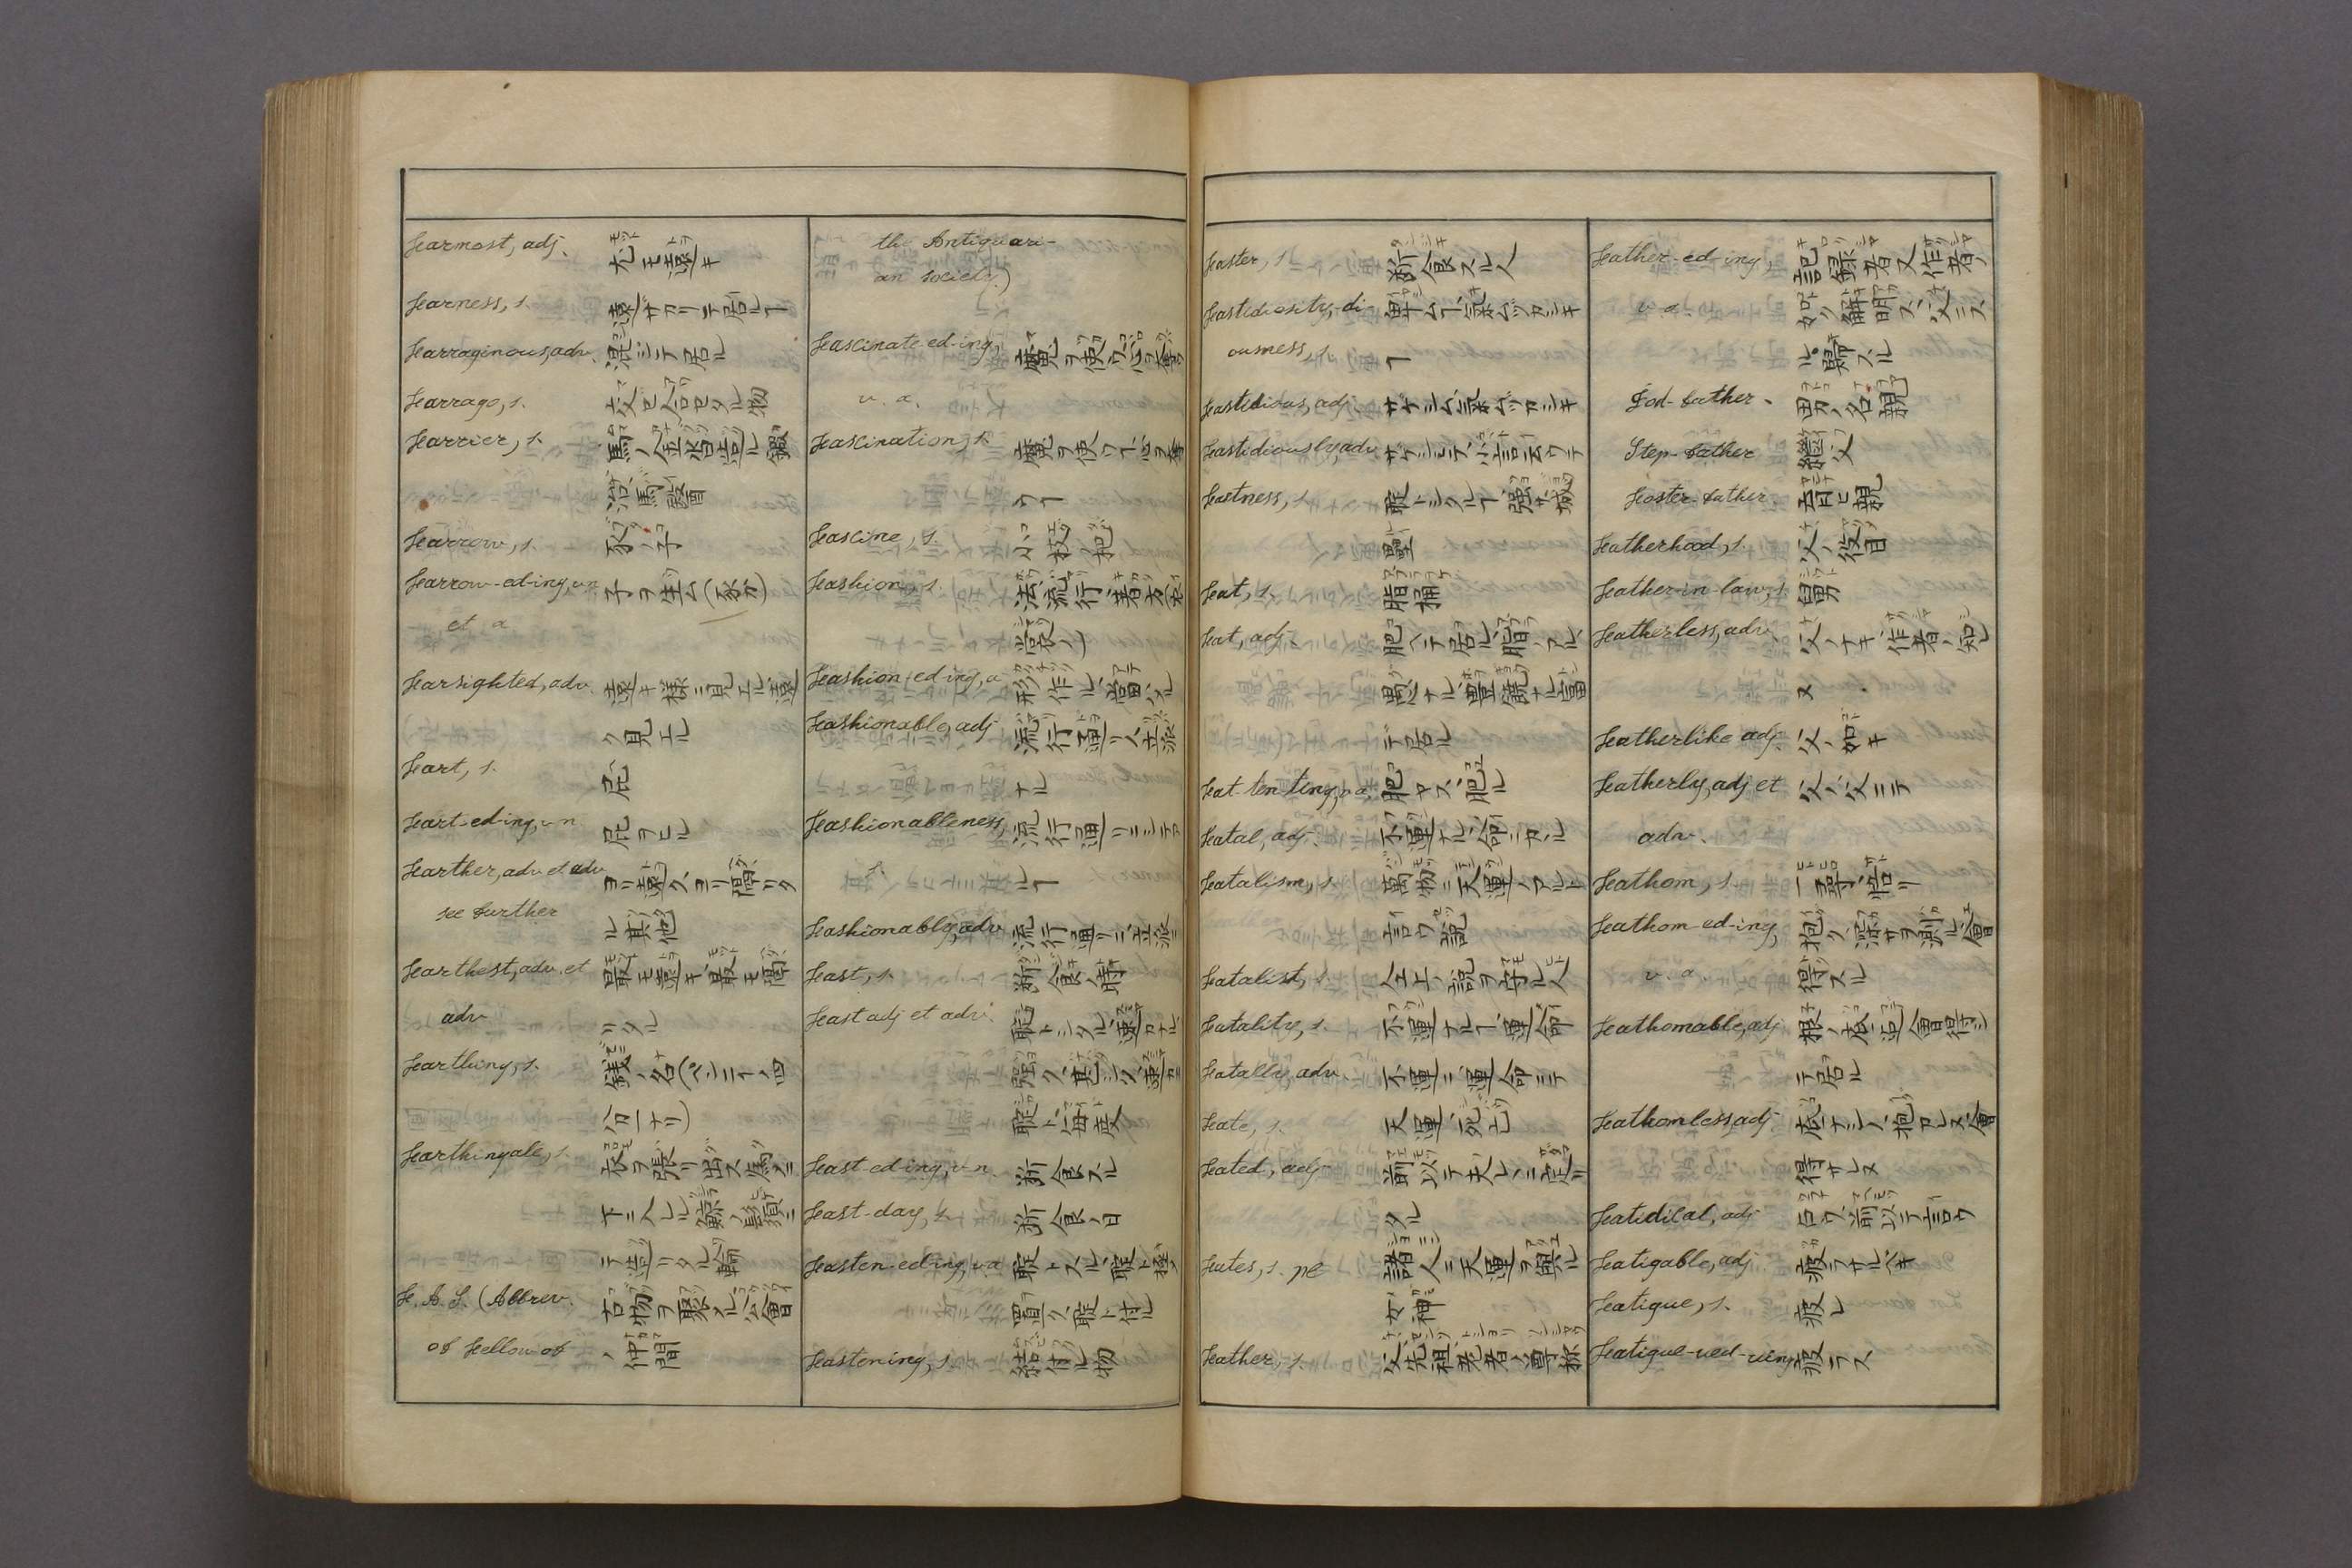 Farmost, adj. 尤モ遠キ
Farness, s. 遠ザカリテ居ルヿ
Farraginous, adv. 混ジテ居ル
Farrago, s. 交ゼ合セタル物
Farrier, s. 馬ノ金沓造ル鍛
冶馬醫
Farrow, s. 豕ノ子
Farrow-ed-ing, v.n. 子ヲ生ム(豕ガ)
et a
Farsighted, adv. 遠キ様ニ見エル、遠
ク見エル
Fart, s. 屁
Fart-ed-ing, v.n 屁ヲヒル
Farther, adv et adv ヨリ遠ク、ヨリ隔リタ
see further ル、其他
Farthest, adv. et 最モ遠キ、最モ隔
adv リタル
Farthing, s. 錢ノ名(ペンニーノ四
分一ナリ)
Farthingale, s. 衣ヲ張リ出ス為ニ
下ニ入レル鯨ノ鬚ニ
テ造リタル輪
F. A. S. (Abbrev. 古物ヲ聚タル公會
of Fellow of ノ仲間
the Antiquari-
an society.)
Fascinate-ed-ing, 魔ヲ使ウ、心ヲ奪ウ
v. a.
Fascination, s. 魔ヲ使ワヿ、心ヲ奪
ウヿ
Fascine, s. 小枝ノ把
Fashion, s. 法、流行、著方(衣
裳ノ)
Fashion-ed-ing, a 形作ル、當ハル
Fashionable, adj 流行通リノ、立派
ナル
Fashionableness, 流行通リニシテア
s. ルヿ
Fashionably, adv 流行通リニ、立派ニ
Fast, s. 断食ノ時
Fast adj et adv. 聢トシタル、速カナル
強ク、甚シク、速カニ
聢ト、毎度
Fast-ed-ing, v.n. 断食スル
Fast-day, s. 断食ノ日
Fasten-ed-ing, v.a 聢トスル、聢ト極
置ク、聢ト付ル
Fastening, s. 結付ル物
Faster, s. 断食スル人
Fastidiosity,-di- 卑ムヿ、氣ムヅカシキ
ousness, s. ヿ
Fastidious, adj. サゲシム、氣ムヅカシキ
Fastidiously, adv サゲシミテ、小言云ウテ
Fastness, s. 聢トシタルヿ、強サ、城
塁
Fat, s. 脂
Fat, adj. 肥ヘテ居ル、脂ノアル、
愚ナル、豊饒ナル、富
デ居ル
Fat-ten-ting, v.a 肥マス、肥ル
Fatal, adj. 不運ナル、命ニカヽル
Fatalism, s. 萬物ニ天運ノアルト
言ウ説
Fatalist, s. 仝上ノ説ヲ守ル人
Fatality, s. 不運ナルヿ、運命
Fatally, adv. 不運ニ、運命ニテ
Fate, s. 天運、死亡
Fated, adj 前以テ夫レニ定リ
タル
Fates, s. pl 諸人ニ天運ヲ與ル
女神
Father, s. 父、先祖、老者ノ尊称
記録者又作者ノ
Father-ed-ing, 如ク解明ス、父ニス
v. a. ル、歸スル
God-father. 男ノ名親
Step-father 繼父
Foster-father. 育ヒ親
Fatherhood, s. 父ノ役目
Father-in-law, s. 舅
Fatherless, adv. 父ノナキ、作者ノ知レ
ヌ
Fatherlike adj. 父ノ如キ
Fatherly, adj et 父ノ、父ニテ
adv.
Fathom, s. 一尋、悟リ
Fathom-ed-ing, 抱ク、深サヲ測ル、會
v. a. 得スル
Fathomable, adj 根ノ底迄會得シ
テ居ル
Fathomless adj 底ナシノ、抱ワレヌ、會
得サレヌ
Fatidical, adj 占ウ、前以テ言ウ
Fatigable, adj 疲ラサルベキ
Fatigue, s. 疲レ
Fatigue-ued-uing 疲ラス